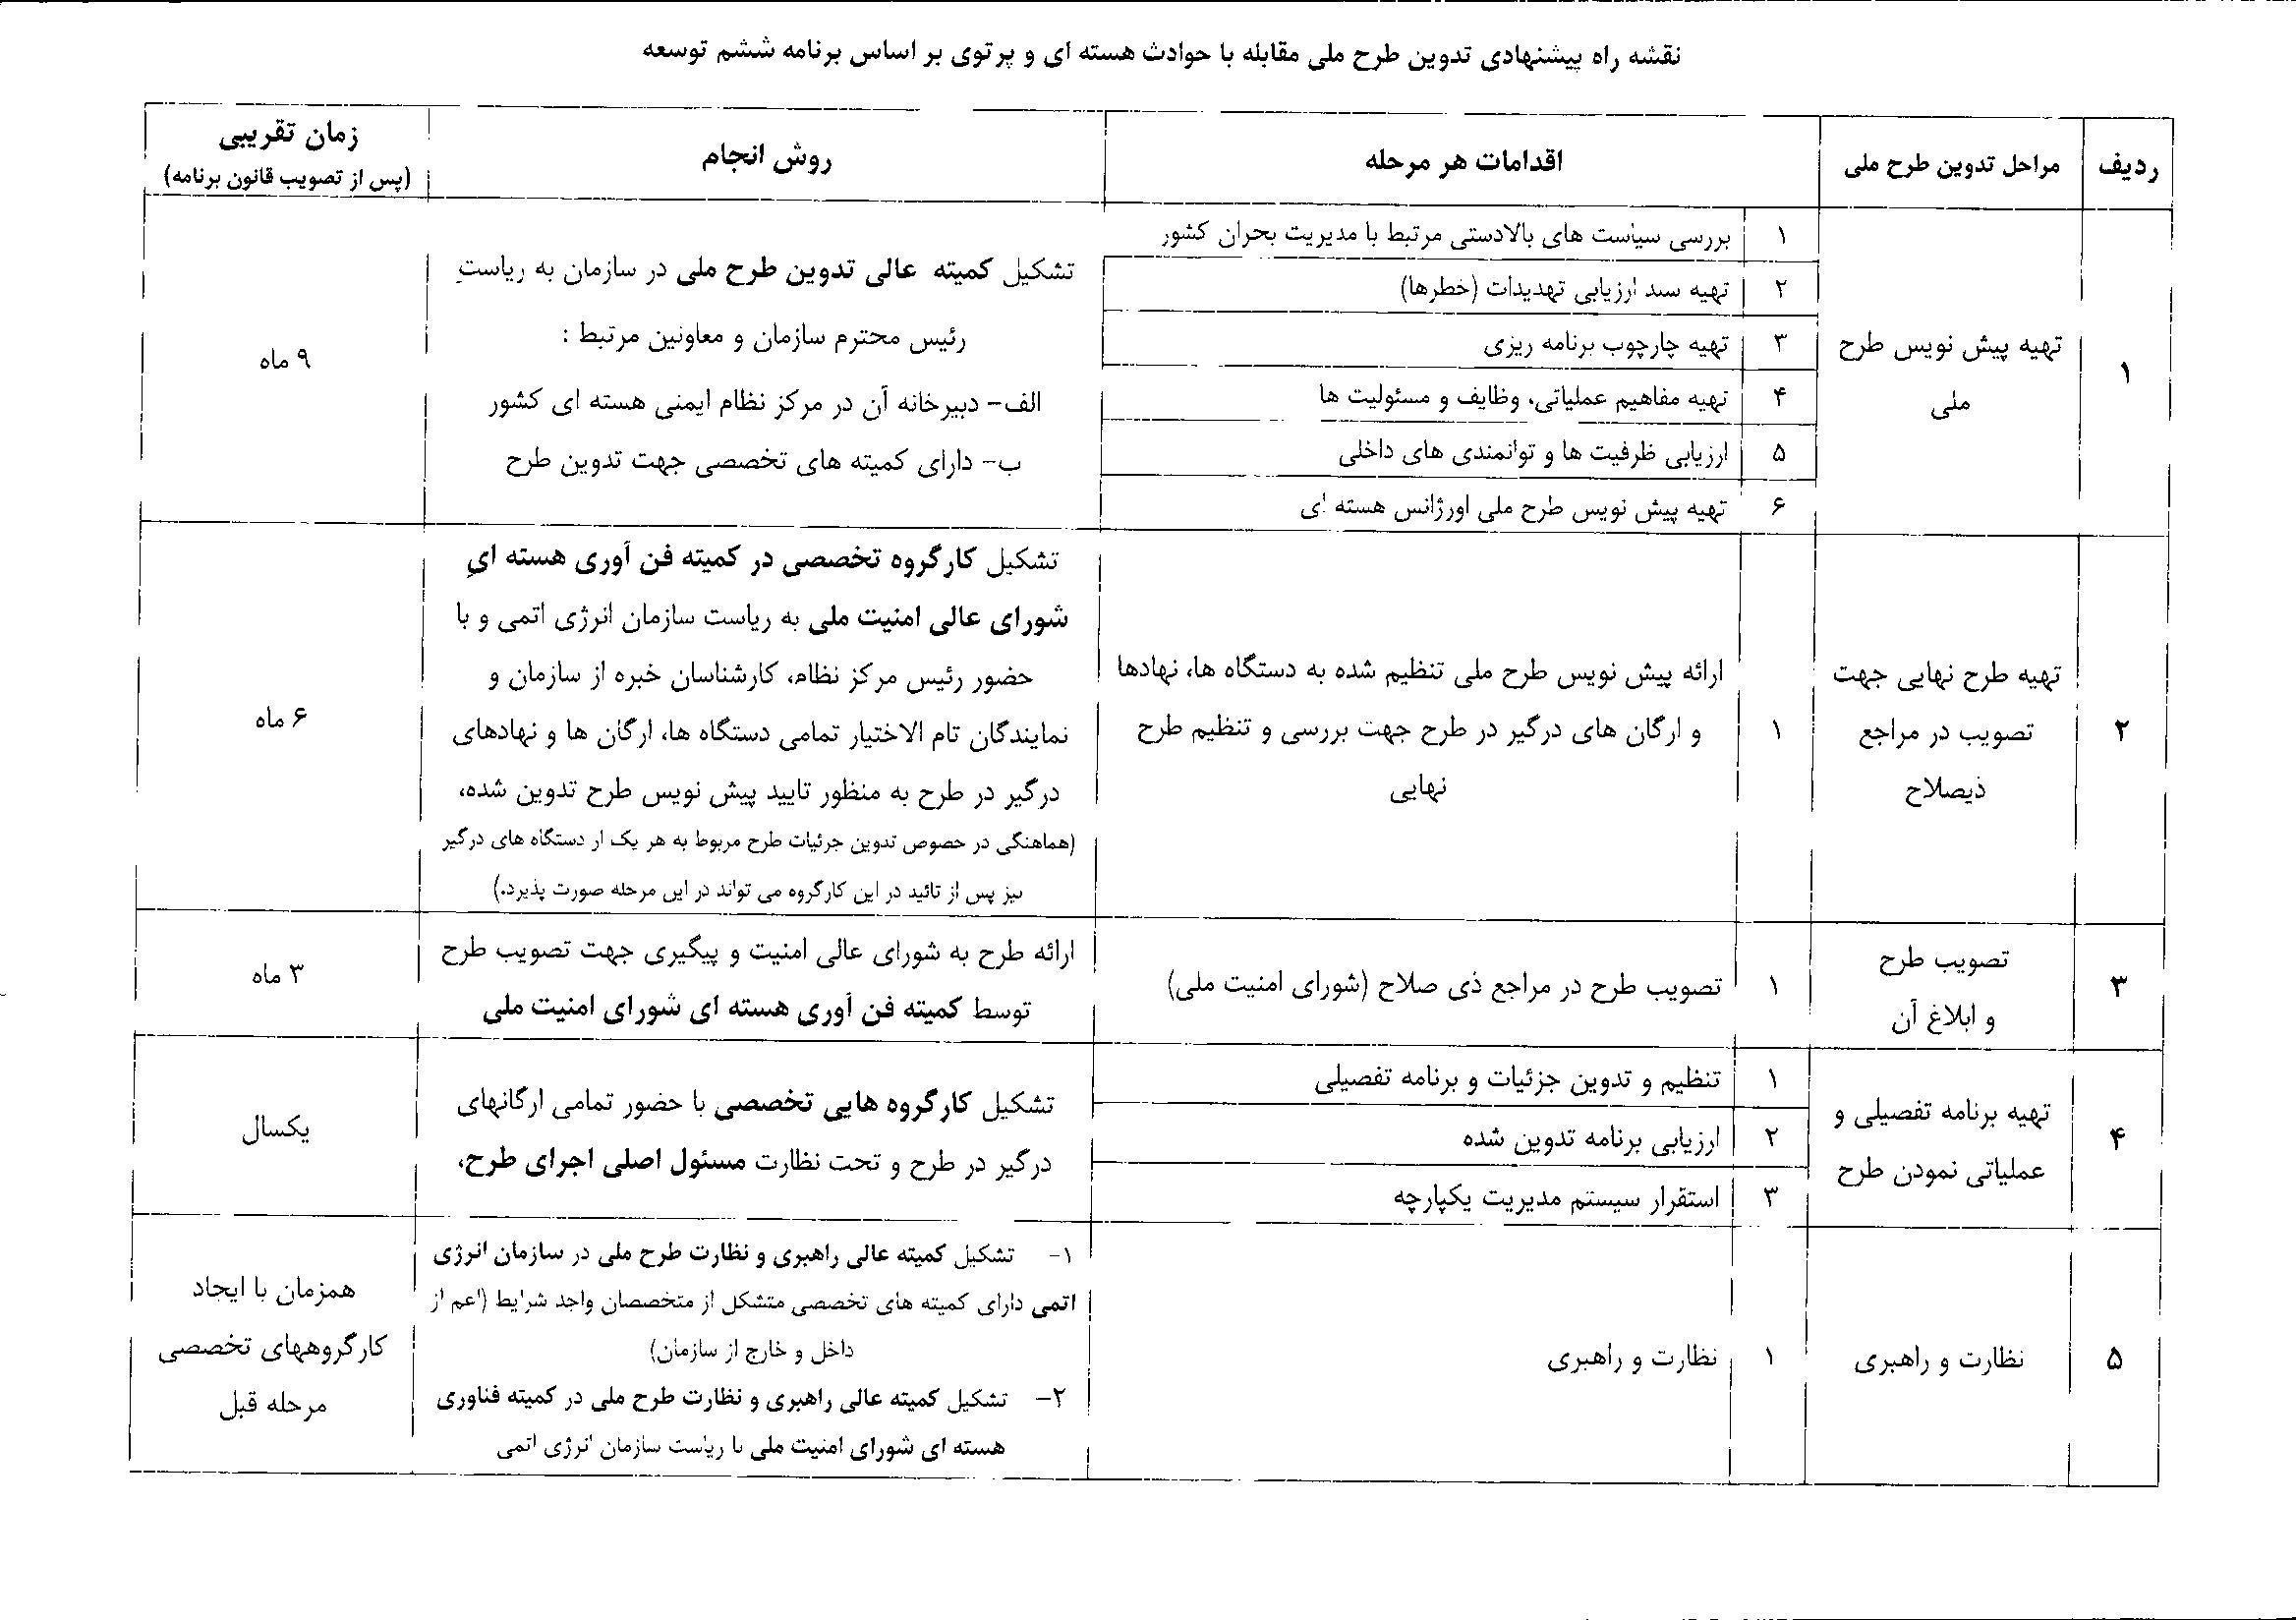 نقشه راه پیشنهادی تدوین طرح ملی مقابله با حوادث هسته ای و پرتوی بر اساس برنامه ششم توسعه
ردیف
مراحل تدوین طرح ملی
اقدامات هر مرحله
روش انجام
زمان تقریبی
(پس از تصویب قانون برنامه)
۱
تهیه پیش نویس طرح
ملی
۱ بررسی سیاست های بالادستی مرتبط با مدیریت بحران کشور
۲ تهیه سند ارزیابی تهدیدات (خطرها)
۳ تهیه چارچوب برنامه ریزی
۴ تهیه مفاهیم عملیاتی، وظایف و مسئولیت ها
۵ ارزیابی ظرفیت ها و توانمندی های داخلی
۶ تهیه پیش نویس طرح ملی اورژانس هسته ای
تشکیل کمیته عالی تدوین طرح ملی در سازمان به ریاستِ
رئیس محترم سازمان و معاونین مرتبط :
الف- دبیرخانه آن در مرکز نظام ایمنی هسته ای کشور
ب- دارای کمیته های تخصصی جهت تدوین طرح
۹ ماه
۲
تهیه طرح نهایی جهت
تصویب در مراجع
ذیصلاح
۱
ارائه پیش نویس طرح ملی تنظیم شده به دستگاه ها، نهادها
و ارگان های درگیر در طرح جهت بررسی و تنظیم طرح
نهایی
تشکیل کارگروه تخصصی در کمیته فن آوری هسته ایِ
شورای عالی امنیت ملی به ریاست سازمان انرژی اتمی و با
حضور رئیس مرکز نظام، کارشناسان خبره از سازمان و
نمایندگان تام الاختیار تمامی دستگاه ها، ارگان ها و نهادهای
درگیر در طرح به منظور تایید پیش نویس طرح تدوین شده،
(هماهنگی در خصوص تدوین جرئیات طرح مربوط به هر یک از دستگاه های درگیر
نیز پس از تائید در این کارگروه می تواند در این مرحله صورت پذیرد.)
۶ ماه
۳
تصویب طرح
و ابلاغ آن
۱ تصویب طرح در مراجع ذی صلاح (شورای امنیت ملی)
ارائه طرح به شورای عالی امنیت و پیگیری جهت تصویب طرح
توسط کمیته فن آوری هسته ای شورای امنیت ملی
۳ ماه
۴
تهیه برنامه تفصیلی و
عملیاتی نمودن طرح
۱ تنظیم و تدوین جزئیات و برنامه تفصیلی
۲ ارزیابی برنامه تدوین شده
۳ استقرار سیستم مدیریت یکپارچه
تشکیل کارگروه هایی تخصصی با حضور تمامی ارگانهای
درگیر در طرح و تحت نظارت مسئول اصلی اجرای طرح،
یکسال
۵
نظارت و راهبری
۱ نظارت و راهبری
۱- تشکیل کمیته عالی راهبری و نظارت طرح ملی در سازمان انرژی
اتمی دارای کمیته های تخصصی متشکل از متخصصان واجد شرایط (اعم از
داخل و خارج از سازمان)
۲- تشکیل کمیته عالی راهبری و نظارت طرح ملی در کمیته فناوری
هسته ای شورای امنیت ملی با ریاست سازمان انرژی اتمی
همزمان با ایجاد
کارگروههای تخصصی
مرحله قبل